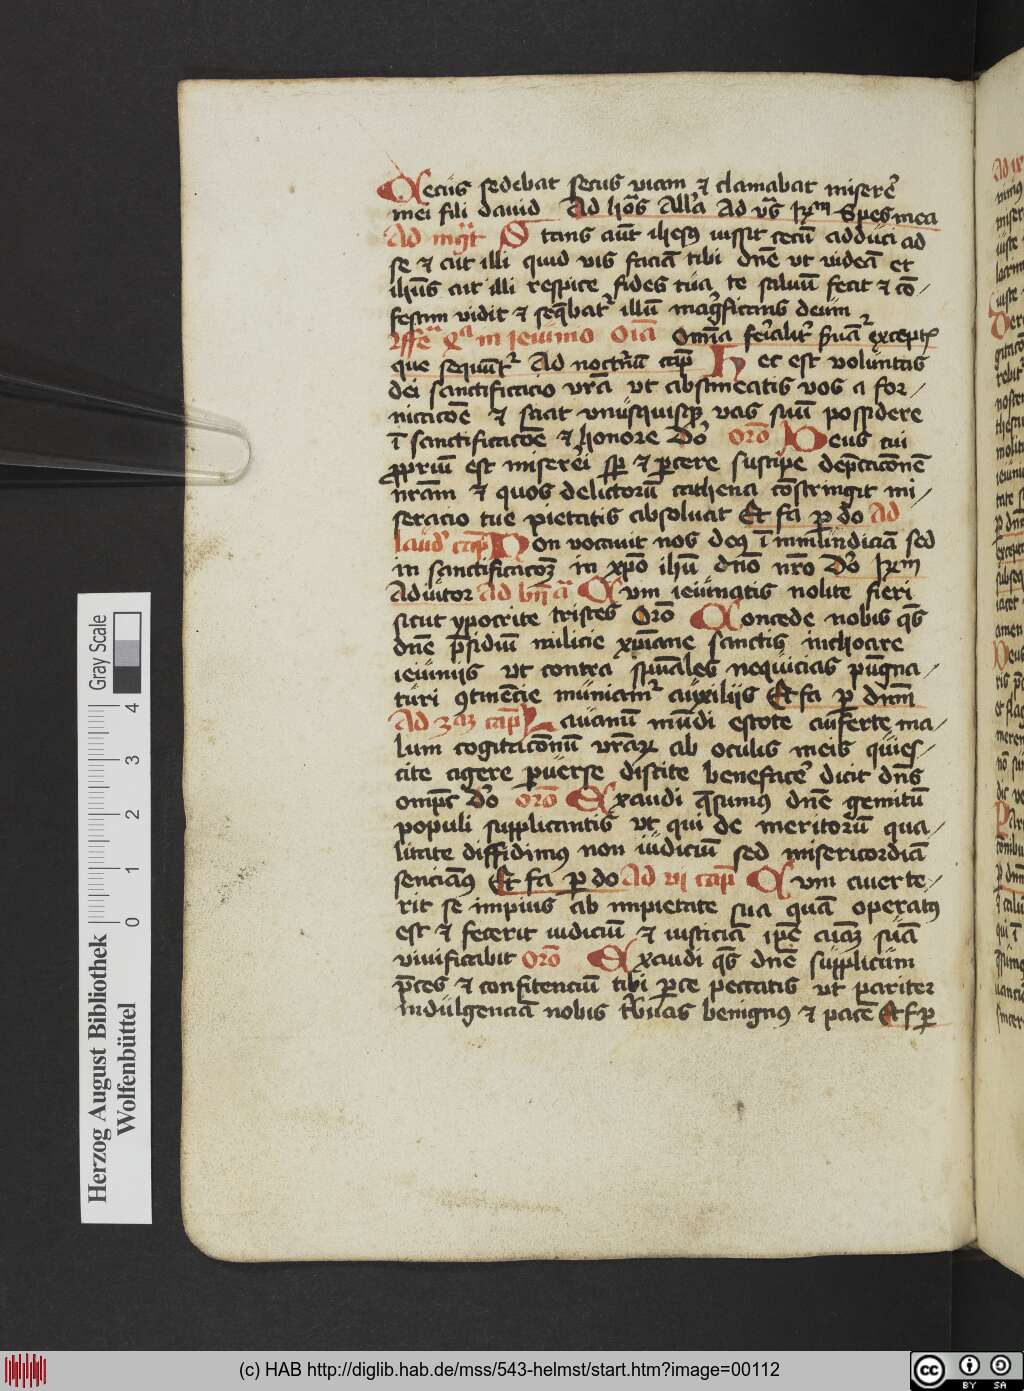 Cecus sedebat secus viam ⁊ clamabat miserẽ
mei fili david Ad hoȓs All'a Ad vs̃ Spes mea
Ad mgt̃ Stans aũt ihesus iussit cecũ adduci ad
se ⁊ ait illi quid vis faciã tibi dñe vt videã et
ihũs ait illi respice fides tua te saluũ fecit ⁊ cõ-
festim vidit ⁊ seq̃batʳ illũ mag̃ficans deum
in ieiunio Oĩa Omĩa fer̃ialitʳ except
que sequũtʳ Ad nocť̃nũ cap̃ Hec est voluntas
dei sanctificacio vr̃a vt abstineatis vos a for-
nicacõe ⁊ sciat vnusquisqꝫ vas suũ possidere
ĩ sanctificacõe ⁊ honore Do' Or̃o Deus cui
ꝓpriũ est miser̃ei sp̃ ⁊ ꝑcere suscipe dep̃cacõnẽ
nr̃am ⁊ quos delictorũ cathena cõstringit mi-
seracio tue pietatis absoluat Et fa ꝑ do Ad
laud' cap̃ Non vocauit nos deus ĩ inmũndiciã sed
in sanctificacõꝫ in xp̃o ihũ dñõ nr̃o Do'
Adiutor Ad bñ ã Cum ieiunatis nolite fieri
sicut ypocrite tristes Or̃o Concede nobis qs̃
dñe p̃sidiũ milicie xp̃iane sanctis inchoare
ieiuniis vt contra sp̃uales nequicias pũgna-
turi ꝯtinẽcie muniamʳ auxiliis Et fa ꝑ dñm
Ad 3ꝫ cap̃ Lavamĩ mũdi estote auferte ma-
lum cogitacõnũ vr̃aꝝ ab oculis meis quies-
cite agere ꝑuerse discite benefacer̃ dicit dñs
omp̃s Do' Or̃o Exaudi q̃sumus dñe gemitũ
populi supplicantis vt qui de meritorũ qua-
litate diffidimus non iudiciũ sed misericordiã
senciamus Et fa ꝑ do Ad vi cap̃ Cum auerte-
rit se impius ab impietate sua quã operatus
est ⁊ fecerit iudiciũ ⁊ iusticiã ip̃e aĩaꝫ suã
viuificabit Or̃o Exaudi qs̃ dñe supplicum
p̃ces ⁊ confitenciũ tibi ꝑce peccatis vt pariter
indulgenciã nobis t̃buas benignus ⁊ pacẽ Et f ꝑ
Herzog August Bibliothek
Wolfenbüttel
Gray Scale
0 1 2 3 4
(c) HAB http://diglib.hab.de/mss/543-helmst/start.htm?image=00112
cc BY SA